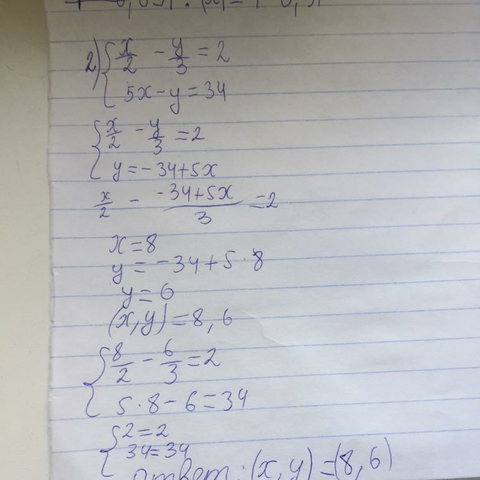 2) { x/2 - y/3 = 2
5x - y = 34
{ x/2 - y/3 = 2
y = -34 + 5x
x/2 - (-34 + 5x)/3 = 2
x = 8
y = -34 + 5 · 8
y = 6
(x, y) = 8, 6
{ 8/2 - 6/3 = 2
5 · 8 - 6 = 34
{ 2 = 2
34 = 34
ответ: (x, y) = (8, 6)